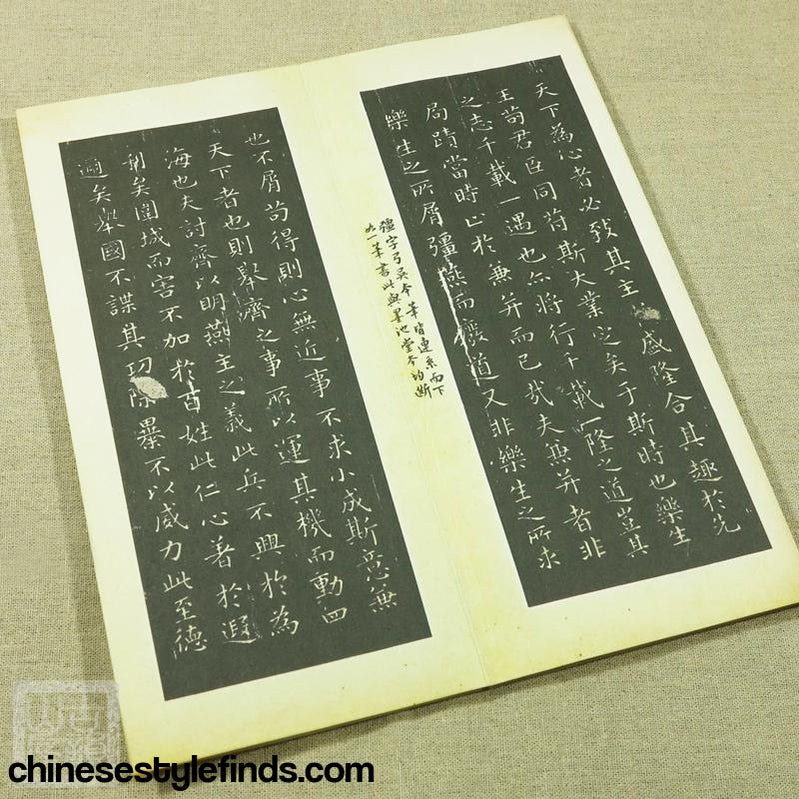 天下為心者必致其主盛隆合其趣於先
王苟君臣同符斯大業定矣于斯時也樂生
之志千載一遇也亦將行千載一隆之道豈其
局蹟當時止於兼并而已哉夫兼并者非
樂生之所屑彊燕而廢道又非樂生之所求
彊字弓吳本筆皆連系而下
此一筆書此與墨池堂本均断
也不屑苟得則心無近事不求小成斯意兼
天下者也則舉齊之事所以運其機而動四
海也夫討齊以明燕主之義此兵不興於為
利矣圍城而害不加於百姓此仁心著於遐
邇矣舉國不謀其功除暴不以威力此至德
chinesestylefinds.com